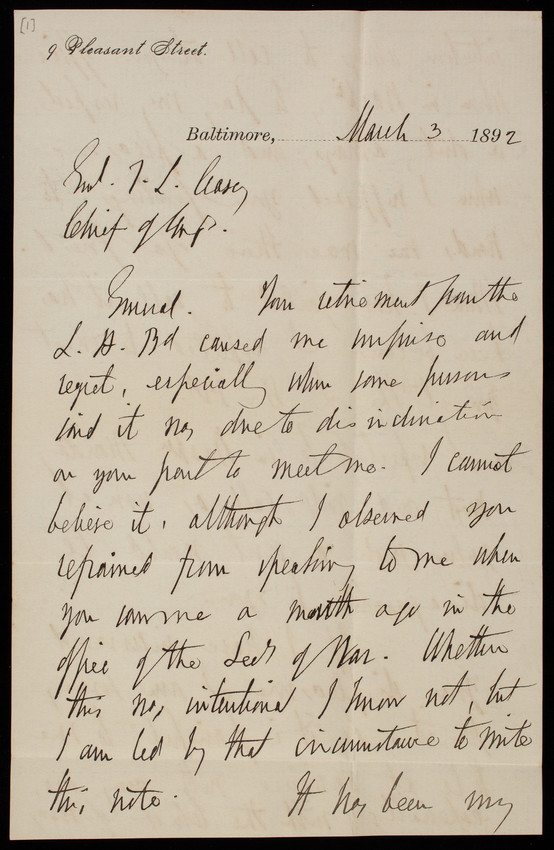 [1]
9 Pleasant Street.
Baltimore, March 3 1892
Genl. T. L. Casey
Chief of Engs.
General. Your retirement from the
L. H. Bd caused me surprise and
regret, especially when some persons
said it was due to disinclination
on your part to meet me. I cannot
believe it, although I observed you
refrained from speaking to me when
you saw me a month ago in the
office of the Secy of War. Whether
this was intentional I know not, but
I am led by that circumstance to write
this note. It has been my